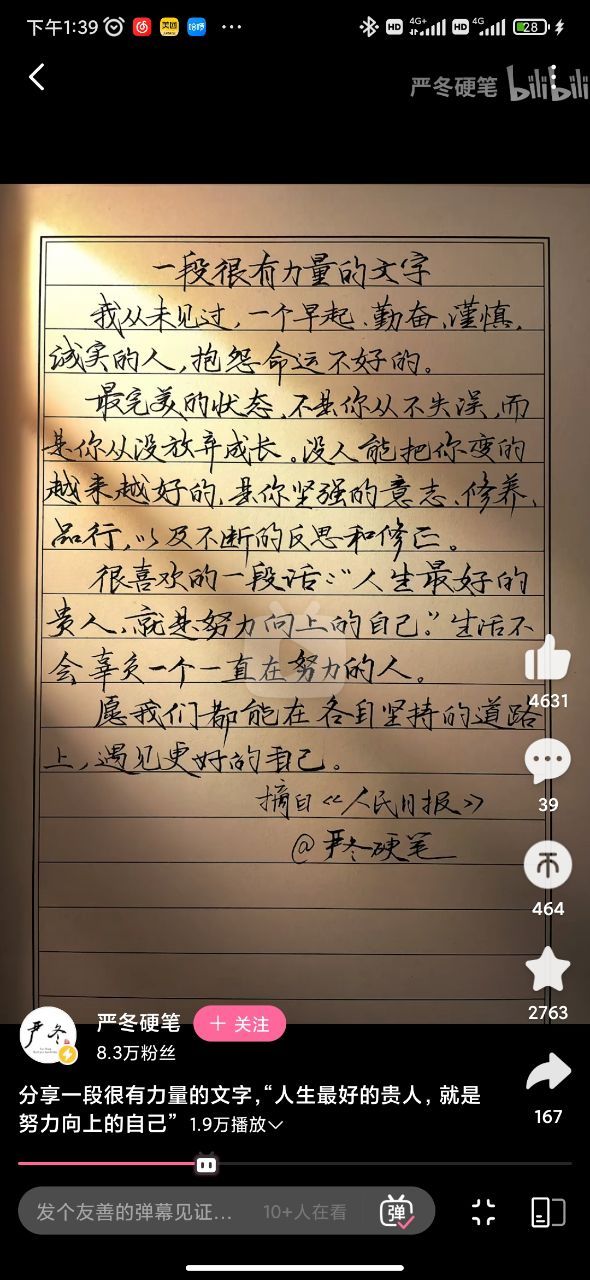 下午1:39
HD 4G+ HD 4G 28
严冬硬笔 bilibili
一段很有力量的文字
我从未见过,一个早起、勤奋、谨慎、
诚实的人,抱怨命运不好的。
最完美的状态,不是你从不失误,而
是你从没放弃成长。没人能把你变的
越来越好的,是你坚强的意志、修养、
品行,以及不断的反思和修正。
很喜欢的一段话:“人生最好的
贵人,就是努力向上的自己。”生活不
会辜负一个一直在努力的人。
愿我们都能在各自坚持的道路
上,遇见更好的自己。
摘自《人民日报》
@严冬硬笔
4631
39
464
2763
167
严冬
严冬硬笔
+ 关注
8.3万粉丝
分享一段很有力量的文字,“人生最好的贵人,就是
努力向上的自己” 1.9万播放
发个友善的弹幕见证... 10+人在看 弹